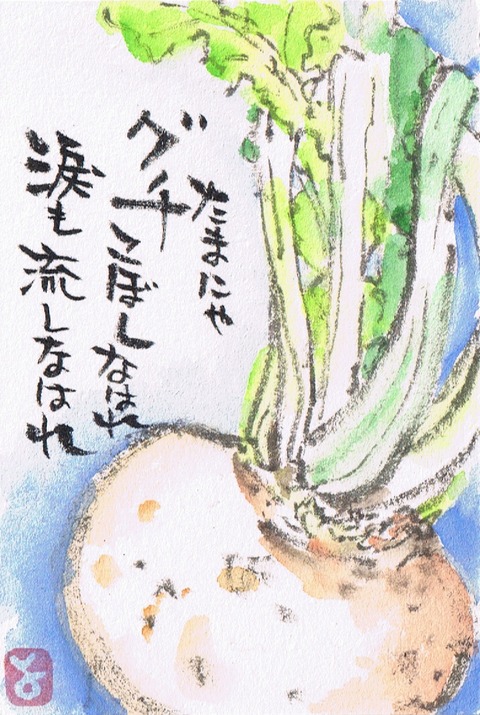 たまにゃ
グチこぼしなはれ
涙も流しなはれ